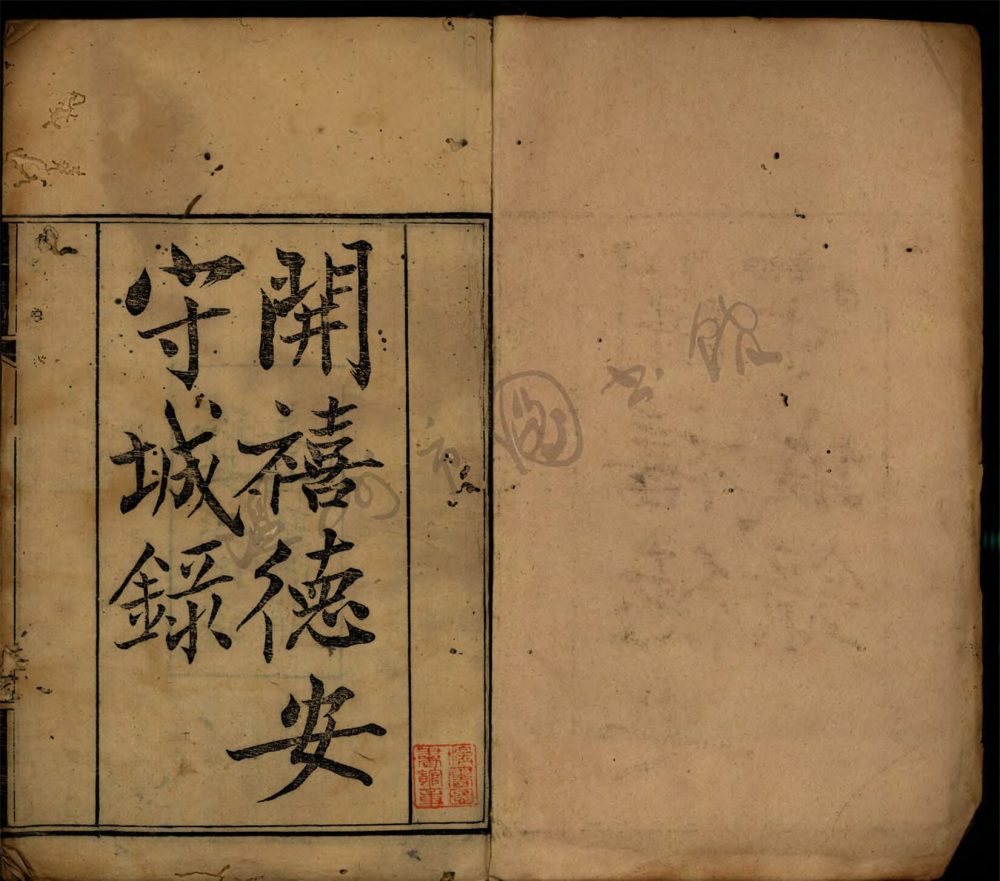 開禧德安
守城錄